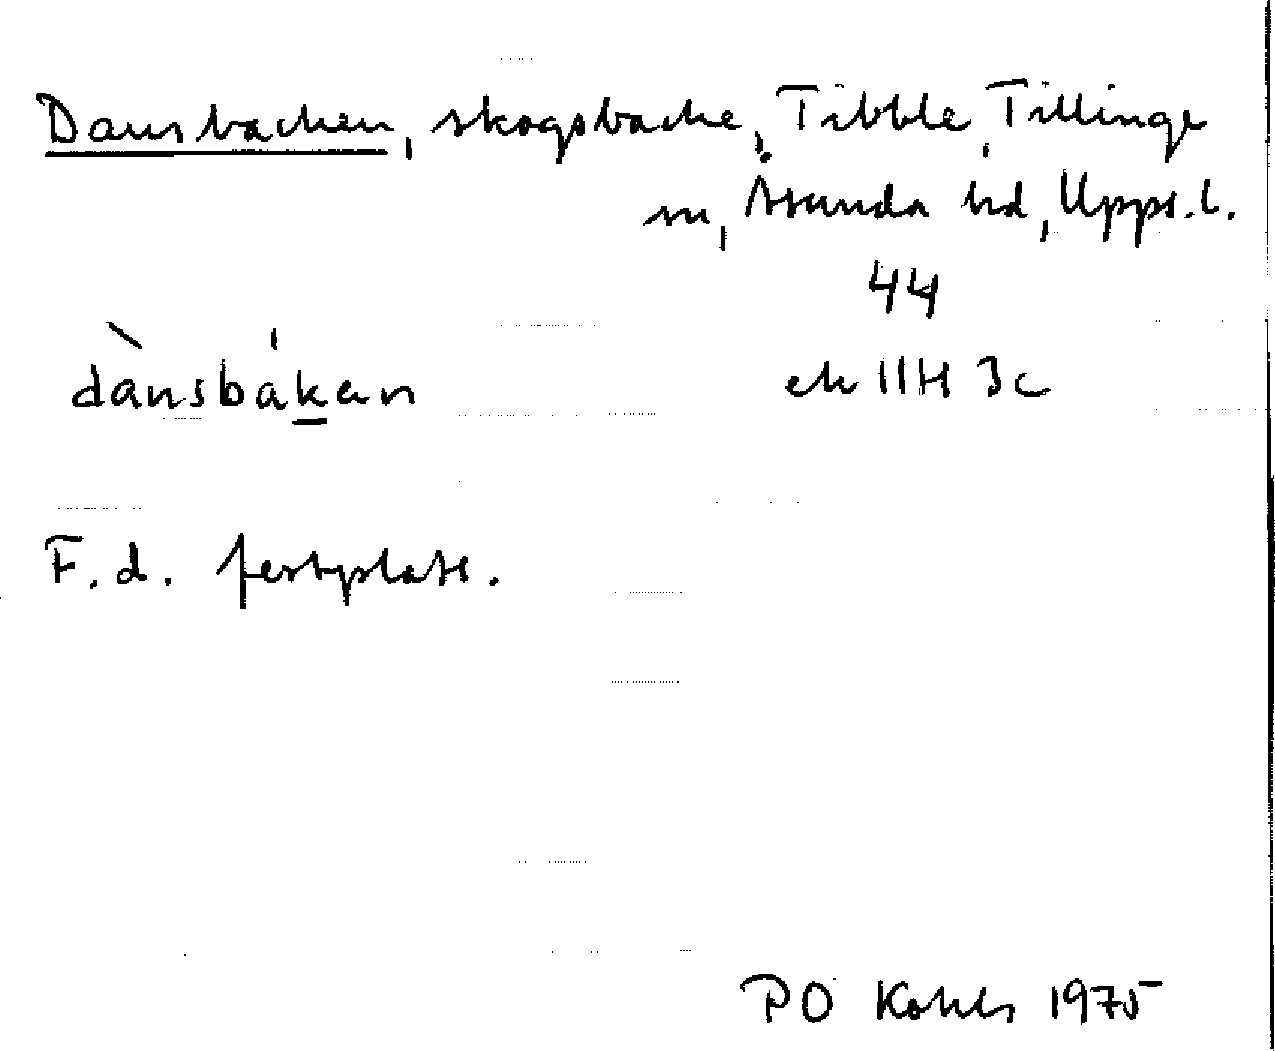 Dansbacken, skogsbacke, Tibble, Tillinge
sn, Åsunda hd, Upps. l.
44
ek 11H 3c
dànsbákan
F. d. festplats.
PO Kohls 1975